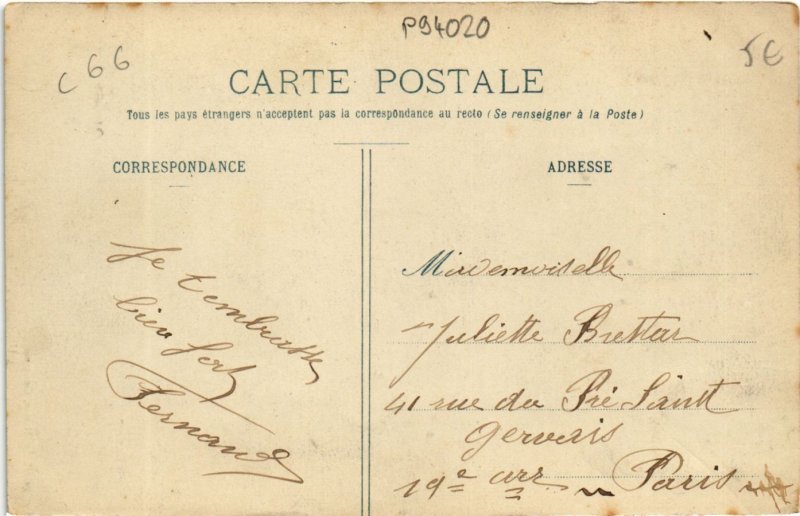 P94020
C66
5€
CARTE POSTALE
Tous les pays étrangers n'acceptent pas la correspondance au recto (Se renseigner à la Poste)
CORRESPONDANCE
Je t'embrasse
bien fort
Fernand
ADRESSE
Mademoiselle
Juliette
41 rue du Pré Saint
Gervais
19e arr Paris